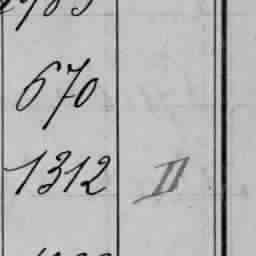 670
1312 II